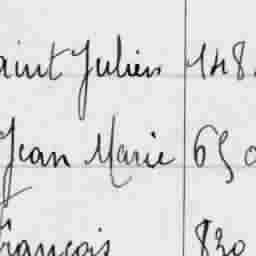 aint Julien 148
Jean Marie 650
François 830